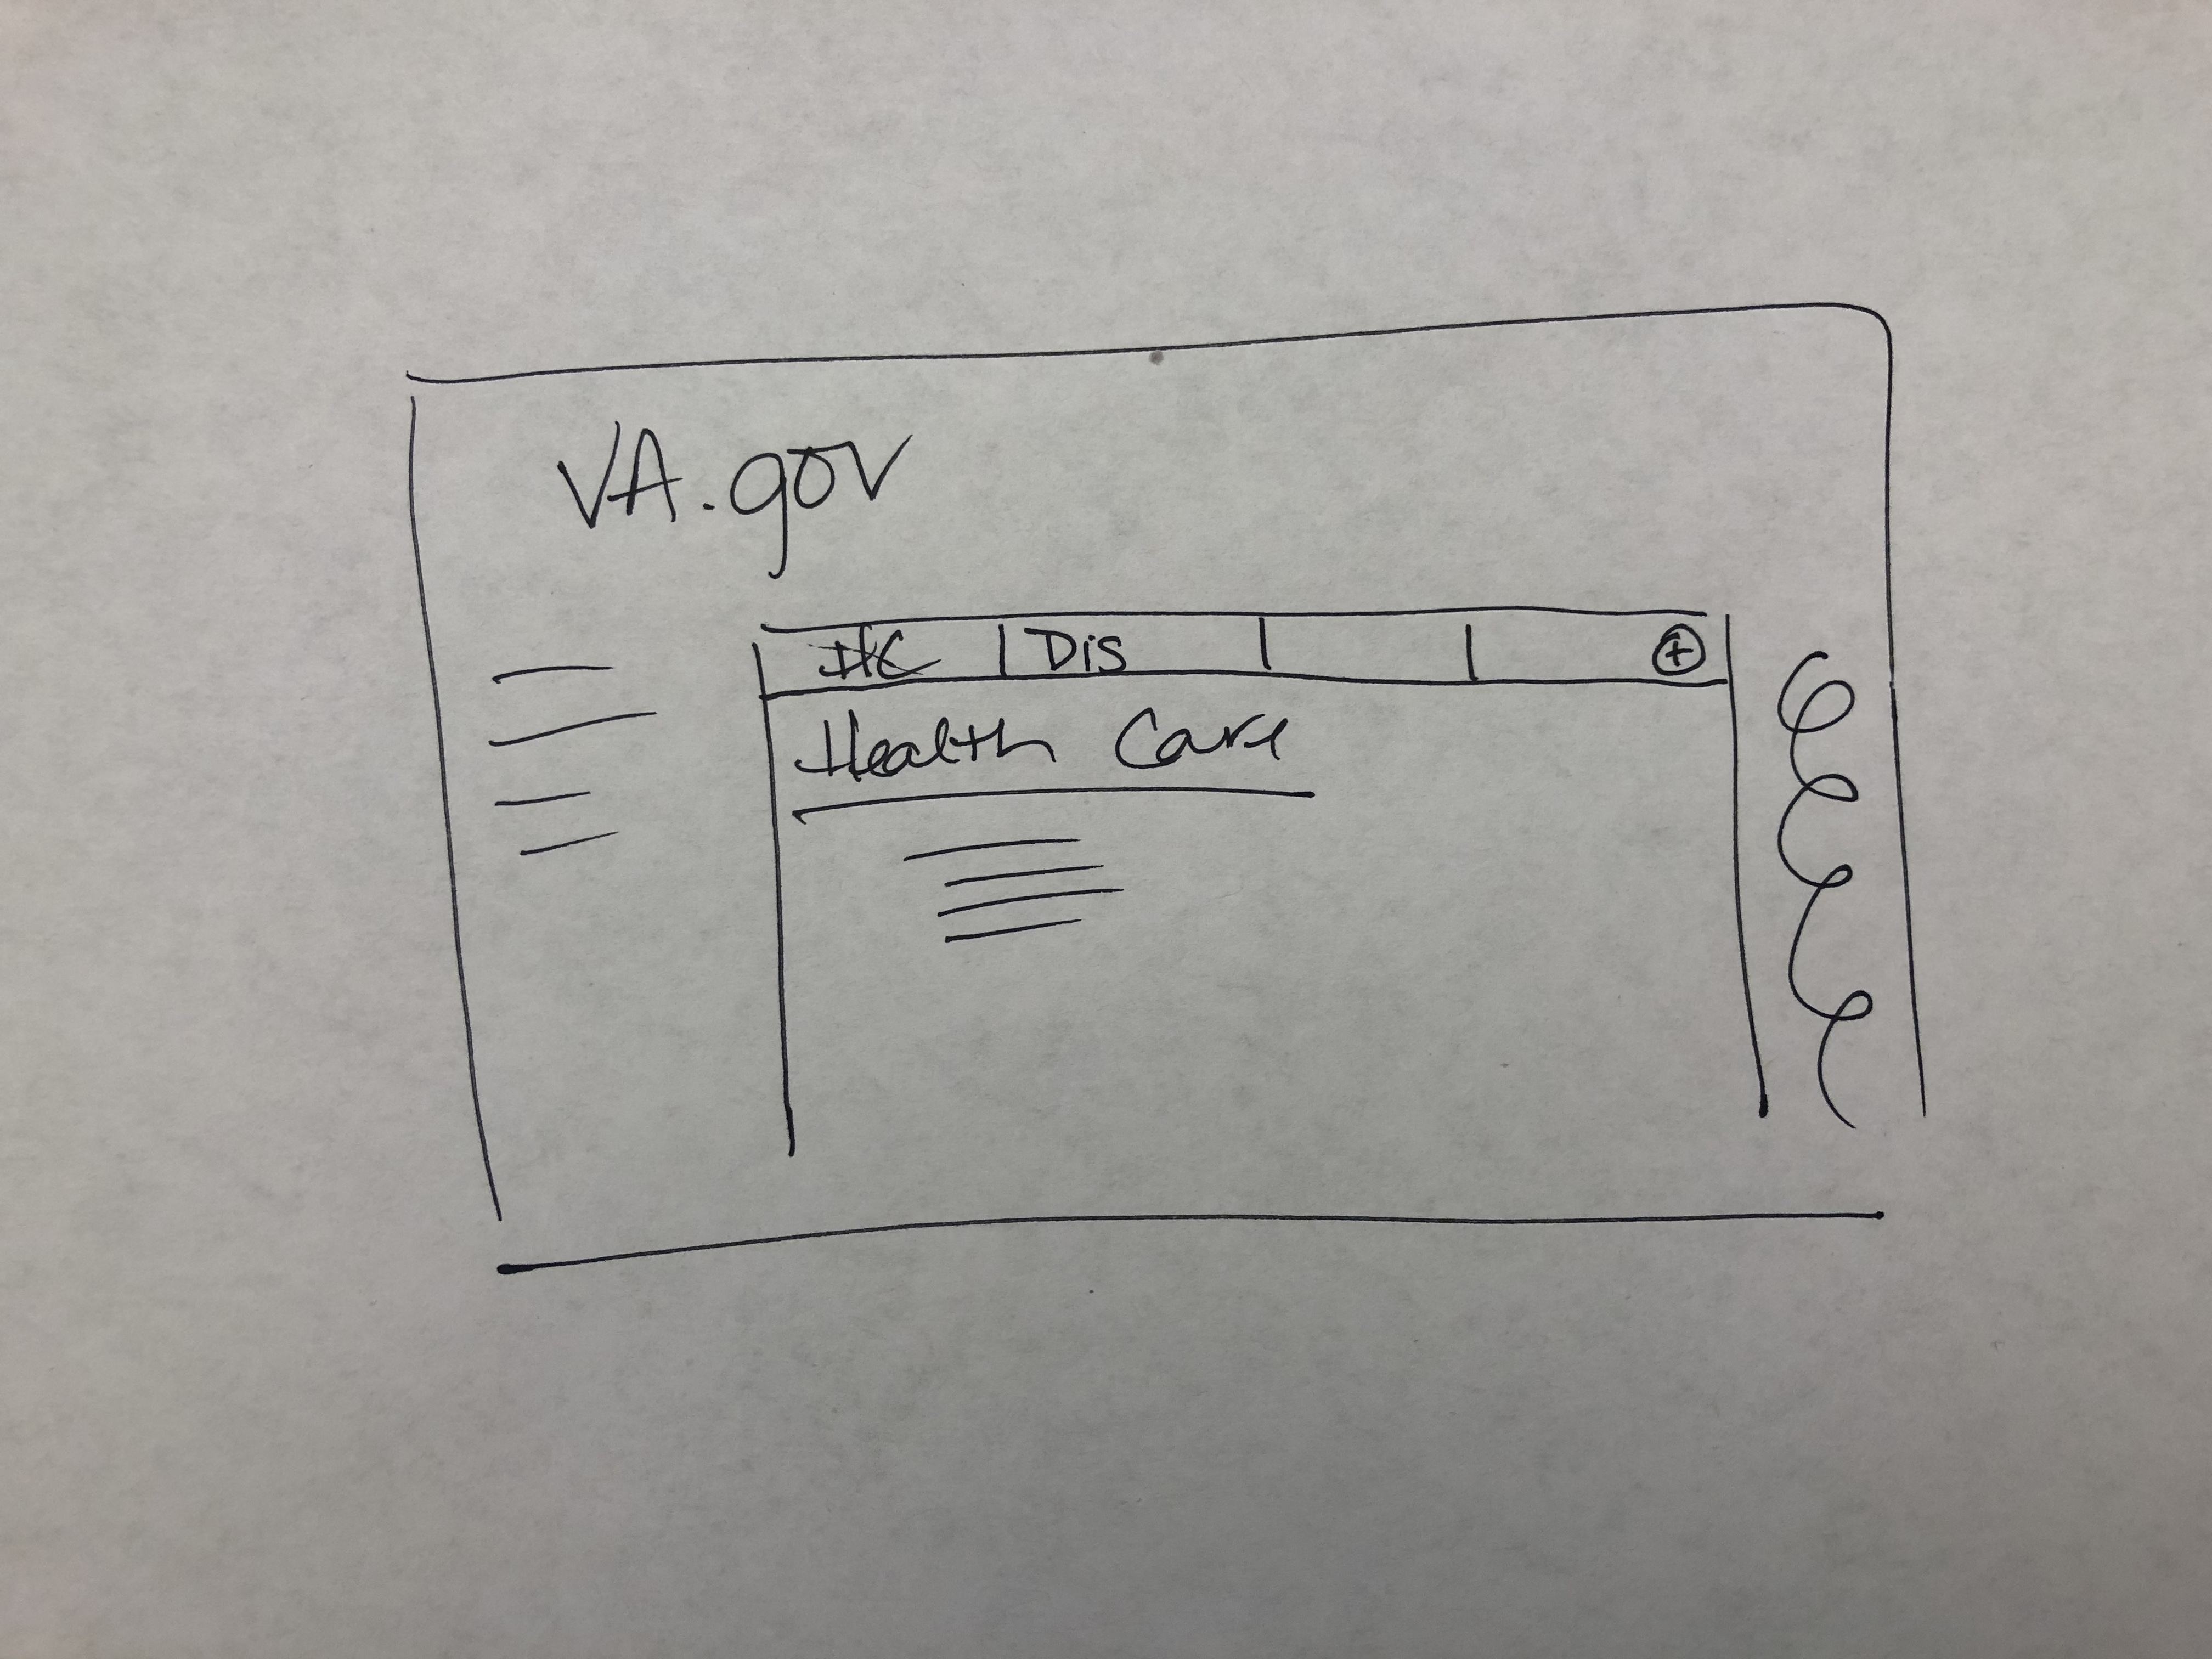 VA.gov
HC | Dis | | +
Health Care